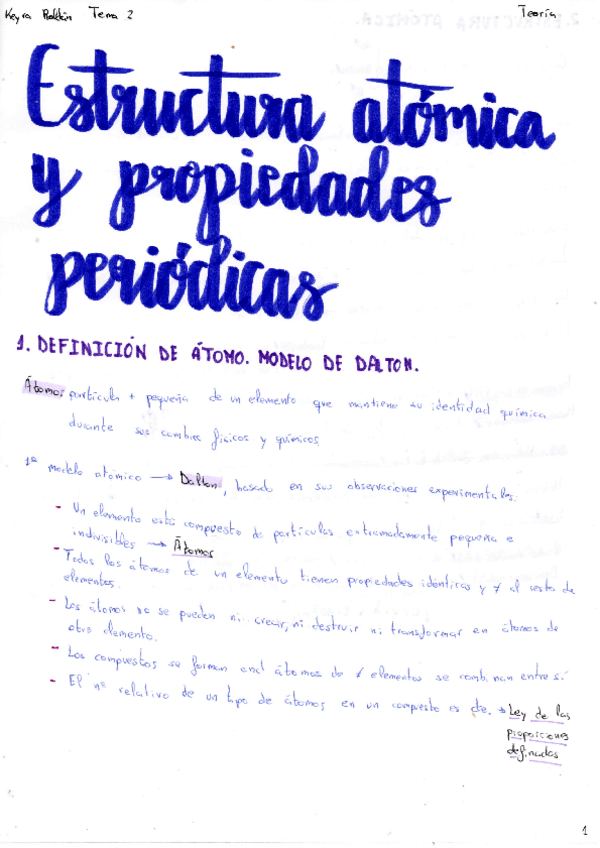 Keyra Roldán Tema 2
Teoría
Estructura atómica
y propiedades
periódicas
1. DEFINICIÓN DE ÁTOMO. MODELO DE DALTON.
Átomo: partícula + pequeña de un elemento que mantiene su identidad química
durante sus cambios físicos y químicos
1º modelo atómico → Dalton, basado en sus observaciones experimentales.
- Un elemento está compuesto de partículas extremadamente pequeña e
indivisibles → Átomos
- Todos los átomos de un elemento tienen propiedades idénticas y ≠ al resto de
elementos.
- Los átomos no se pueden ni crear, ni destruir ni transformar en átomos de
otro elemento.
- Los compuestos se forman cnd átomos de ≠ elementos se combinan entre sí
- El nº relativo de un tipo de átomos en un compuesto es cte. → Ley de las
proporciones
definidas
1